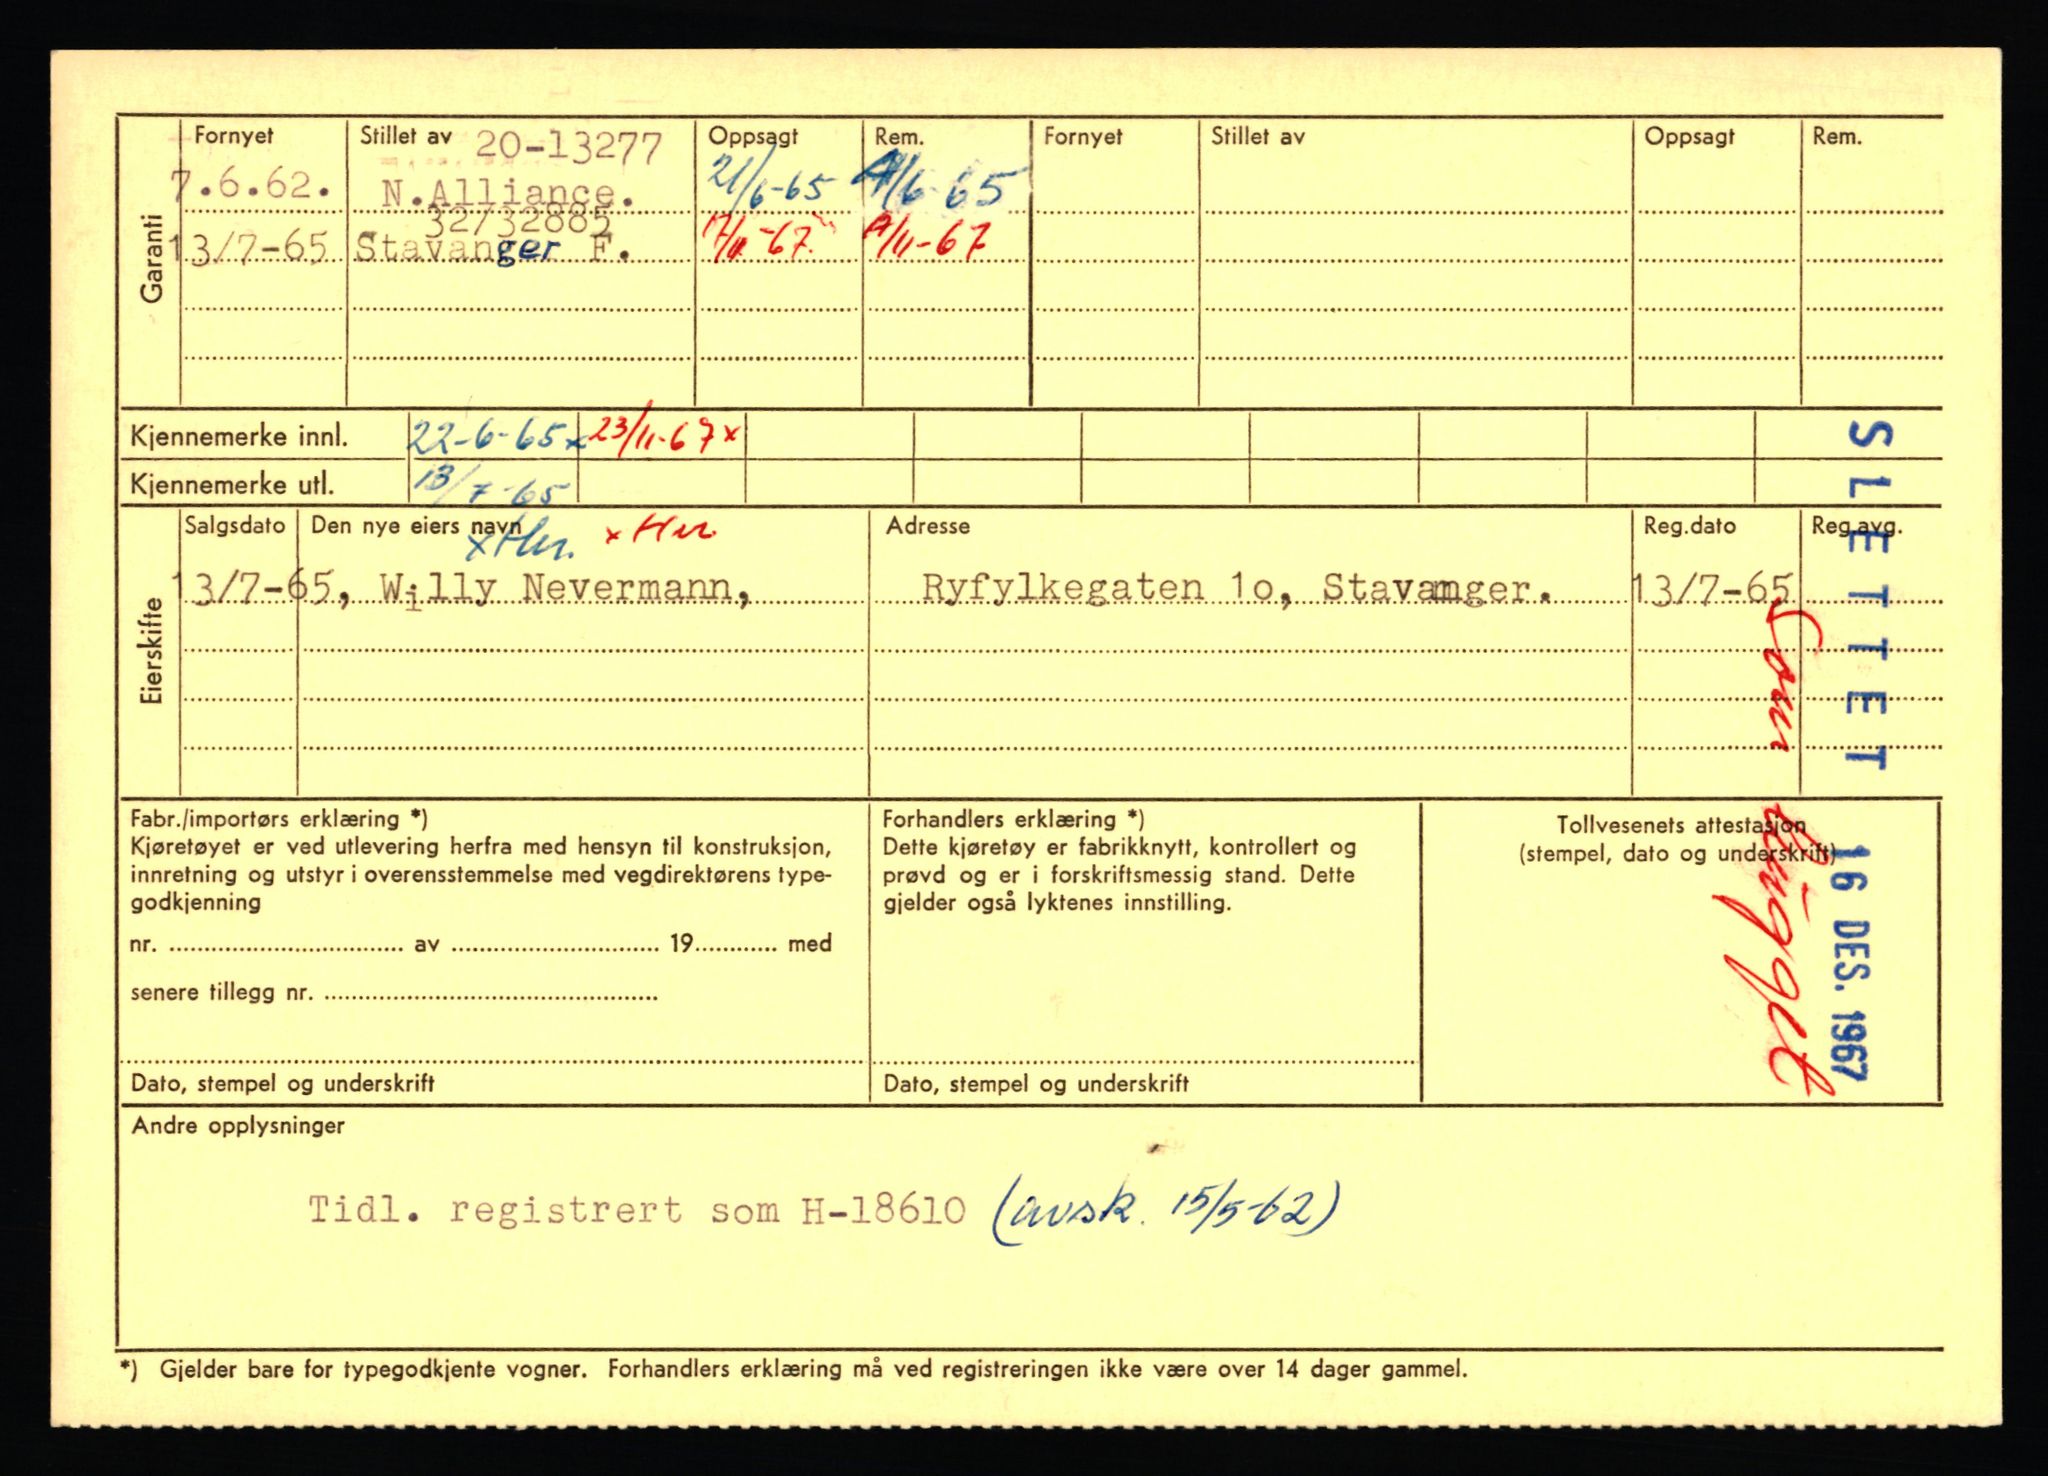 Garanti
Fornyet Stillet av 20-13277 Oppsagt Rem. Fornyet Stillet av Oppsagt Rem.
7.6.62. N.Alliance. 21/6-65 /6-65
32/32885
13/7-65 Stavanger F. 17/11-67. /11-67
Kjennemerke innl. 22-6-65x 23/11-67x
Kjennemerke utl. 13/7-65
Eierskifte
Salgsdato Den nye eiers navn Adresse Reg.dato Reg.avg.
x Her. x Her.
13/7-65, Willy Nevermann, Ryfylkegaten 1o, Stavamger. 13/7-65
SLETTET
16 DES. 1967
Som hugget
Fabr./importørs erklæring *)
Kjøretøyet er ved utlevering herfra med hensyn til konstruksjon,
innretning og utstyr i overensstemmelse med vegdirektørens type-
godkjenning
nr. av 19 med
senere tillegg nr.
Dato, stempel og underskrift
Forhandlers erklæring *)
Dette kjøretøy er fabrikknytt, kontrollert og
prøvd og er i forskriftsmessig stand. Dette
gjelder også lyktenes innstilling.
Dato, stempel og underskrift
Tollvesenets attestasjon
(stempel, dato og underskrift)
Andre opplysninger
Tidl. registrert som H-18610 (avsk. 15/5-62)
*) Gjelder bare for typegodkjente vogner. Forhandlers erklæring må ved registreringen ikke være over 14 dager gammel.